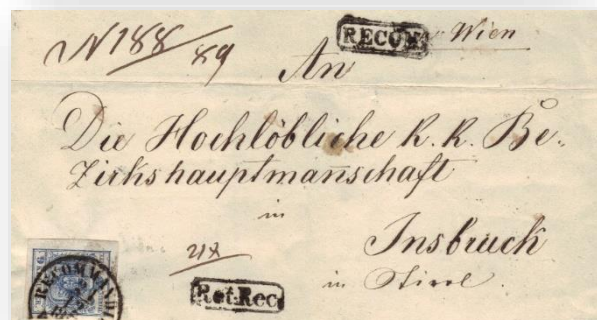 N 188/89
RECOM. Wien
An
Die Hochlöbliche k. k. Be-
zirkshauptmañschaft
in
Insbruck
in Tirol.
Ret:Rec
RECOMMANDI